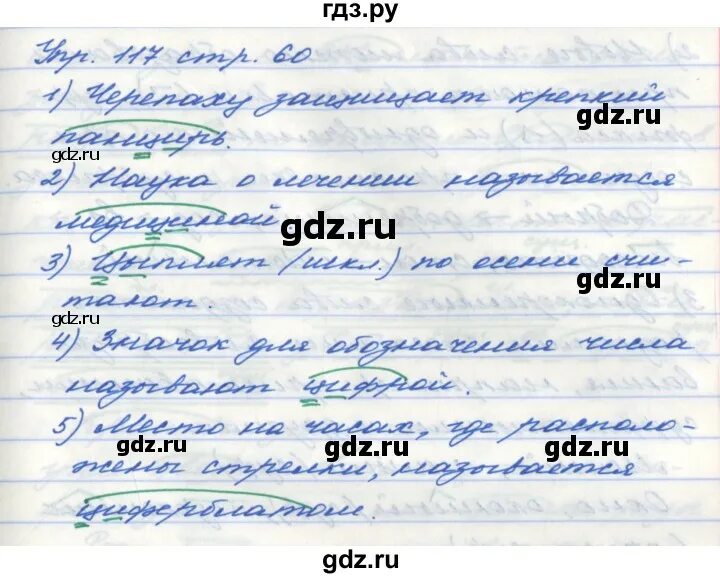 гдз.ру
Упр. 117 стр. 60
1) Черепаху защищает крепкий
панцирь.
gdz.ru
2) Наука о лечении называется
медициной
gdz.ru
gdz.ru
3) Цыплят (искл.) по осени счи-
тают.
gdz.ru
4) Значок для обозначения числа
называют цифрой.
5) Место на часах, где располо-
gdz.ru gdz.ru gdz.ru
жены стрелки, называется
циферблатом.
gdz.ru
gdz.ru